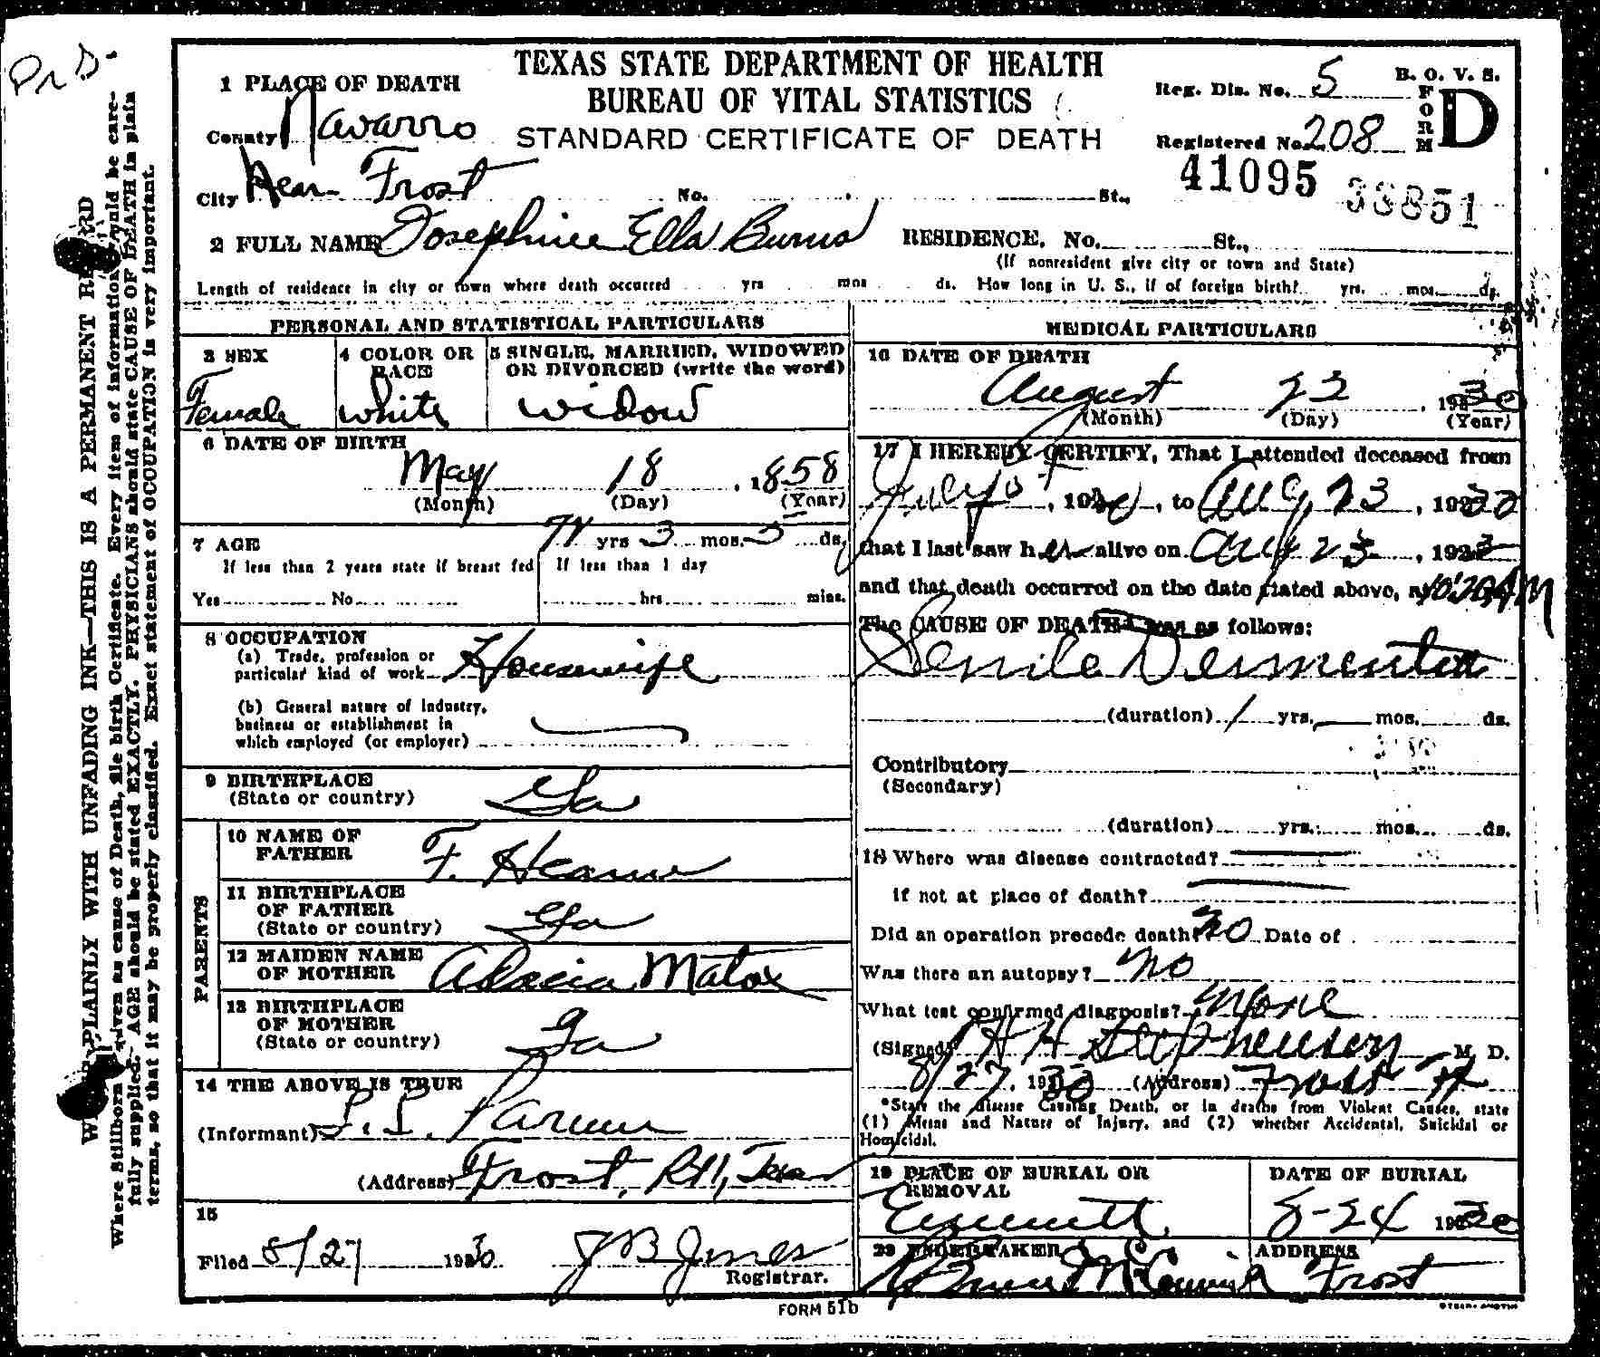 TEXAS STATE DEPARTMENT OF HEALTH
BUREAU OF VITAL STATISTICS
STANDARD CERTIFICATE OF DEATH
B. O. V. S.
FORM D
Reg. Dis. No. 5
Registered No. 208
41095 38851
1 PLACE OF DEATH
County Navarro
City Near Frost No. St.,
2 FULL NAME Josephine Ella Burns RESIDENCE. No. St.,
(If nonresident give city or town and State)
Length of residence in city or town where death occurred yrs mos ds. How long in U. S., if of foreign birth? yrs. mos. ds.
PERSONAL AND STATISTICAL PARTICULARS
3 SEX
Female
4 COLOR OR RACE
white
5 SINGLE, MARRIED, WIDOWED
OR DIVORCED (write the word)
widow
6 DATE OF BIRTH
May 18, 1858
(Month) (Day) (Year)
7 AGE yrs 3 mos. 5 ds.
If less than 2 years state if breast fed If less than 1 day
Yes No hrs. mins.
8 OCCUPATION
(a) Trade, profession or
particular kind of work Housewife
(b) General nature of Industry,
business or establishment in
which employed (or employer)
9 BIRTHPLACE
(State or country) Ga
PARENTS
10 NAME OF
FATHER F.
11 BIRTHPLACE
OF FATHER
(State or country) Ga
12 MAIDEN NAME
OF MOTHER Matox
13 BIRTHPLACE
OF MOTHER
(State or country) Ga
14 THE ABOVE IS TRUE
(Informant)
(Address) Frost, Texas
15
Filed 8/27 1930 J B Jones
Registrar.
MEDICAL PARTICULARS
16 DATE OF DEATH
August 23, 1930
(Month) (Day) (Year)
17 I HEREBY CERTIFY, That I attended deceased from
, to Aug, 23,
that I last saw her alive on Aug 23,
and that death occurred on the date stated above, at 10:20 AM
The CAUSE OF DEATH was as follows:
Senile Dementia
(duration) 1 yrs. mos. ds.
Contributory
(Secondary)
(duration) yrs. mos. ds.
18 Where was disease contracted?
if not at place of death?
Did an operation precede death? no Date of
Was there an autopsy? no
What test confirmed diagnosis? none
(Signed) H H Stephenson M D.
8/27, 1930 (Address) Frost
*State the disease Causing Death, or in deaths from Violent Causes, state
(1) Means and Nature of Injury, and (2) whether Accidental, Suicidal or
Homicidal.
19 PLACE OF BURIAL OR
REMOVAL
Emmett
DATE OF BURIAL
8-24 1930
20 UNDERTAKER
ADDRESS
Frost
FORM 51b
WRITE PLAINLY WITH UNFADING INK—THIS IS A PERMANENT RECORD
Where Stillborn is given as cause of Death, file birth Certificate. Every item of information should be care-
fully supplied. AGE should be stated EXACTLY. PHYSICIANS should state CAUSE OF DEATH in plain
terms, so that it may be properly classified. Exact statement of OCCUPATION is very important.